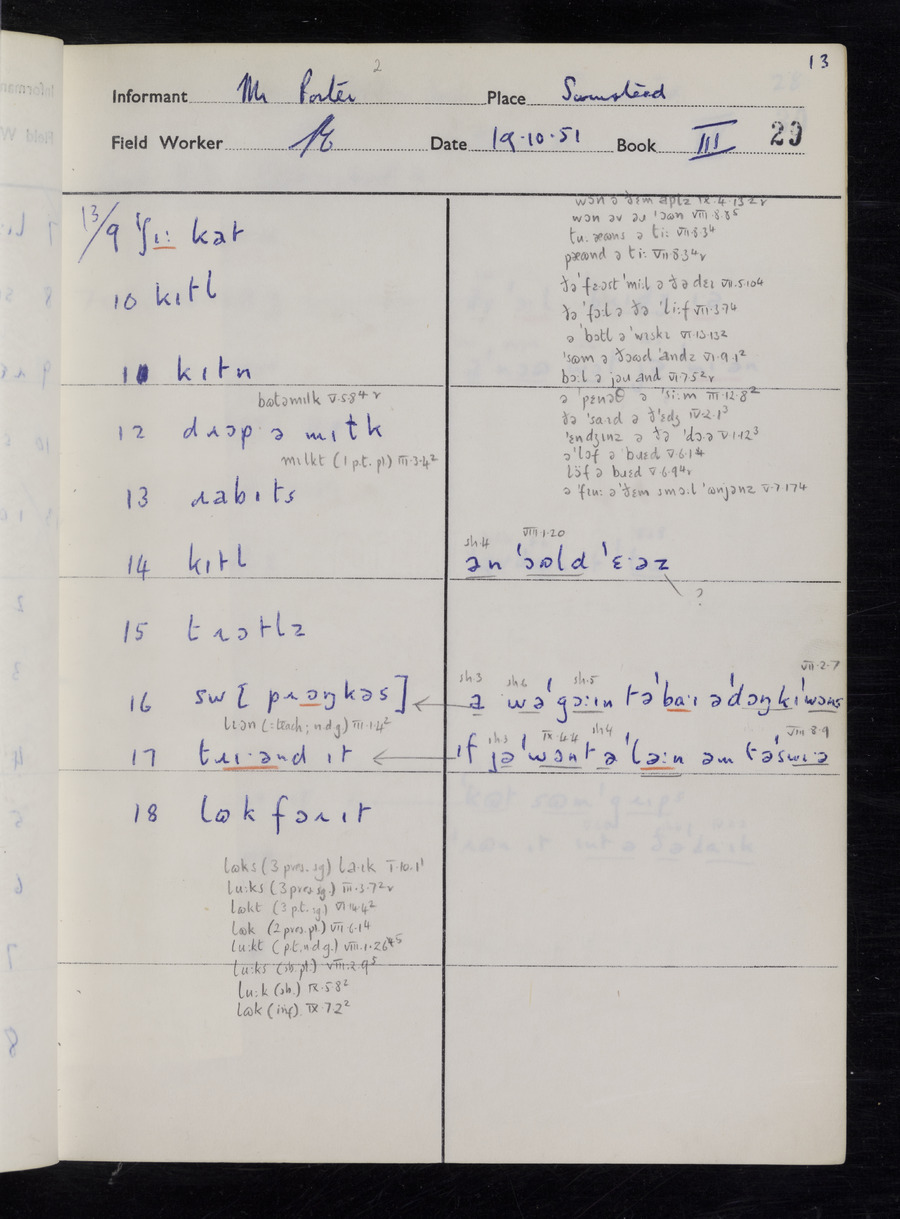 13
2
Informant Mr Porter Place
Field Worker Date 19·10·51 Book III 29
13/9 ˈʃɪ: kat
10 kɪtl
11 kɪtn
bɷtəmɪlk V·5·84 r
12 dɹɔp ə mɪlk
milkt (1 p.t. pl) III·3·4²
13 ɹabɪts
14 kɪtl
15 tɹɔtlz
16 sw[ pɹəŋkəs]
lɪən (= teach; n.d.g) III·1·4²
17 tɹɪ·and ɪt
18 lɷk fəɹ ɪt
lɷks (3 pres. sg) laɪk I·10·1¹
lu:ks (3 pres sg.) III·3·7² r
lɷkt (3 p.t. sg) VI·14·4²
lɷk (2 pres. pl.) VII·6·14
lu:kt (p.t. n.d.g.)
lu:ks (sb. pl.) VIII·2·9⁵
lu:k (sb.) IX·5·8²
lɷk (inf.) IX·7·2²
wɔn ə ðem aplz IX·4·13 2r
wɔn əv əɹ ˈɔɷn VIII·8·8⁵
ə ti: VII·8·34
ə ti: VII·8·34 r
ðə ˈfɛəst ˈmi:l ə ðə deɪ VII·5·104
ðə ˈfɔ:l ə ðə ˈli:f VII·3·74
ə ˈbɔtl ə ˈwɪskɪ VI·13·13²
ˈsɷm ə ˈandz VI·9·1²
bɔ:l ə jəɹ and VI·7·5² r
ə ˈpɛnəθ ə ˈsi:m III·12·8²
ðə ˈsaɪd ə ð'edʒ IV·2·1³
ˈendʒɪnz ə ðə ˈdɔ·ə V·1·12³
ə ˈlɔf ə ˈbɹɛd V·6·14
lɔf ə bɹɛd V·6·94r
ə ˈfɪu: ə ˈðem smɔ:l ˈɷnjənz V·7·174
sh.4 VIII·1·20
ən ˈɔɷld ˈɛ·əz
?
sh.3 sh.6 sh.5 VII·2·7
a wə ˈgɔ:ɪn tə ˈba:ɪ ə ˈdɔŋkɪ ˈwɔns
sh.3 IX·4·4 sh.4 VIII·8·9
ɪf jə ˈwɔnt ə ˈlə:n əm tə